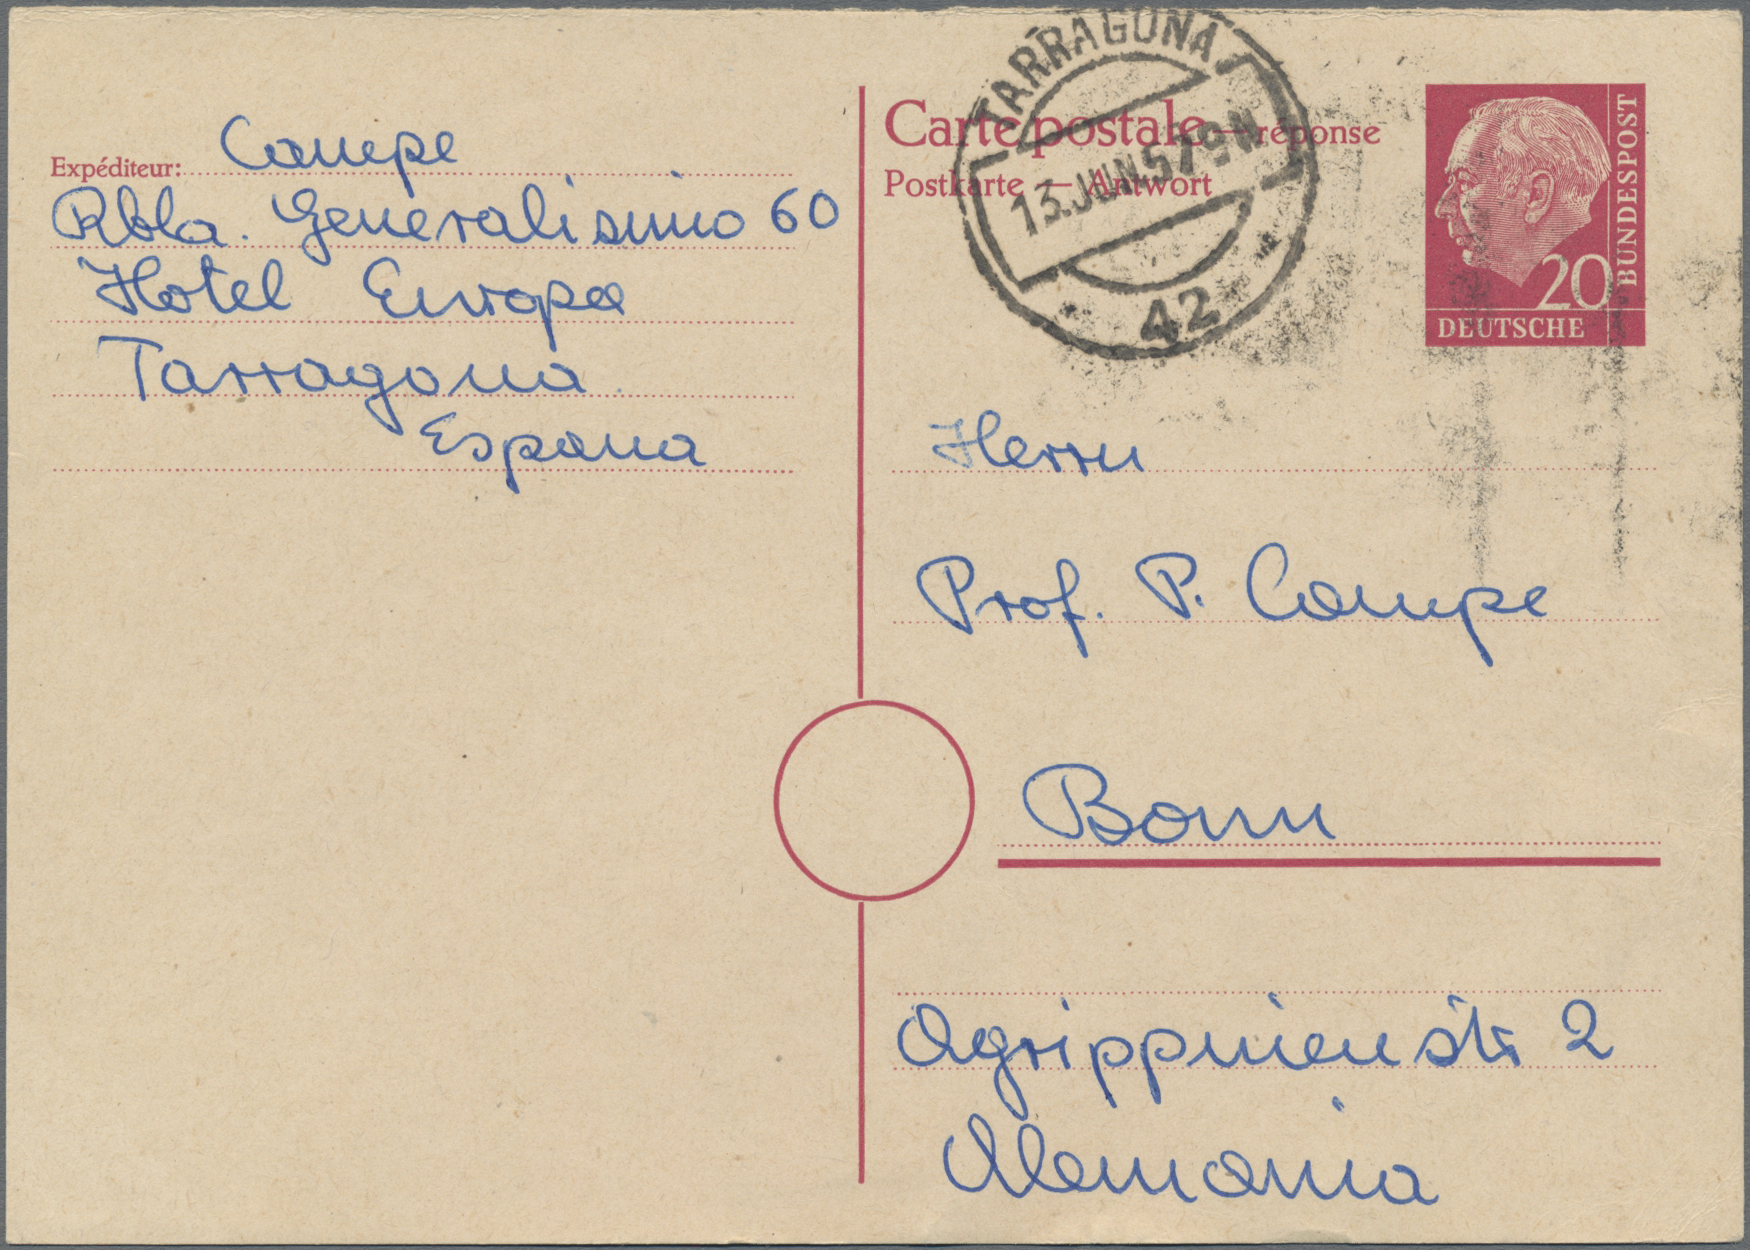 Expéditeur: Campe
Rbla. Generalisimo 60
Hotel Europa
Tarragona
Espana
Carte postale — réponse
Postkarte — Antwort
TARRAGONA
13.JUN.57
42
20
DEUTSCHE
BUNDESPOST
Herrn
Prof. P. Campe
Bonn
Agrippinenstr 2
Alemania